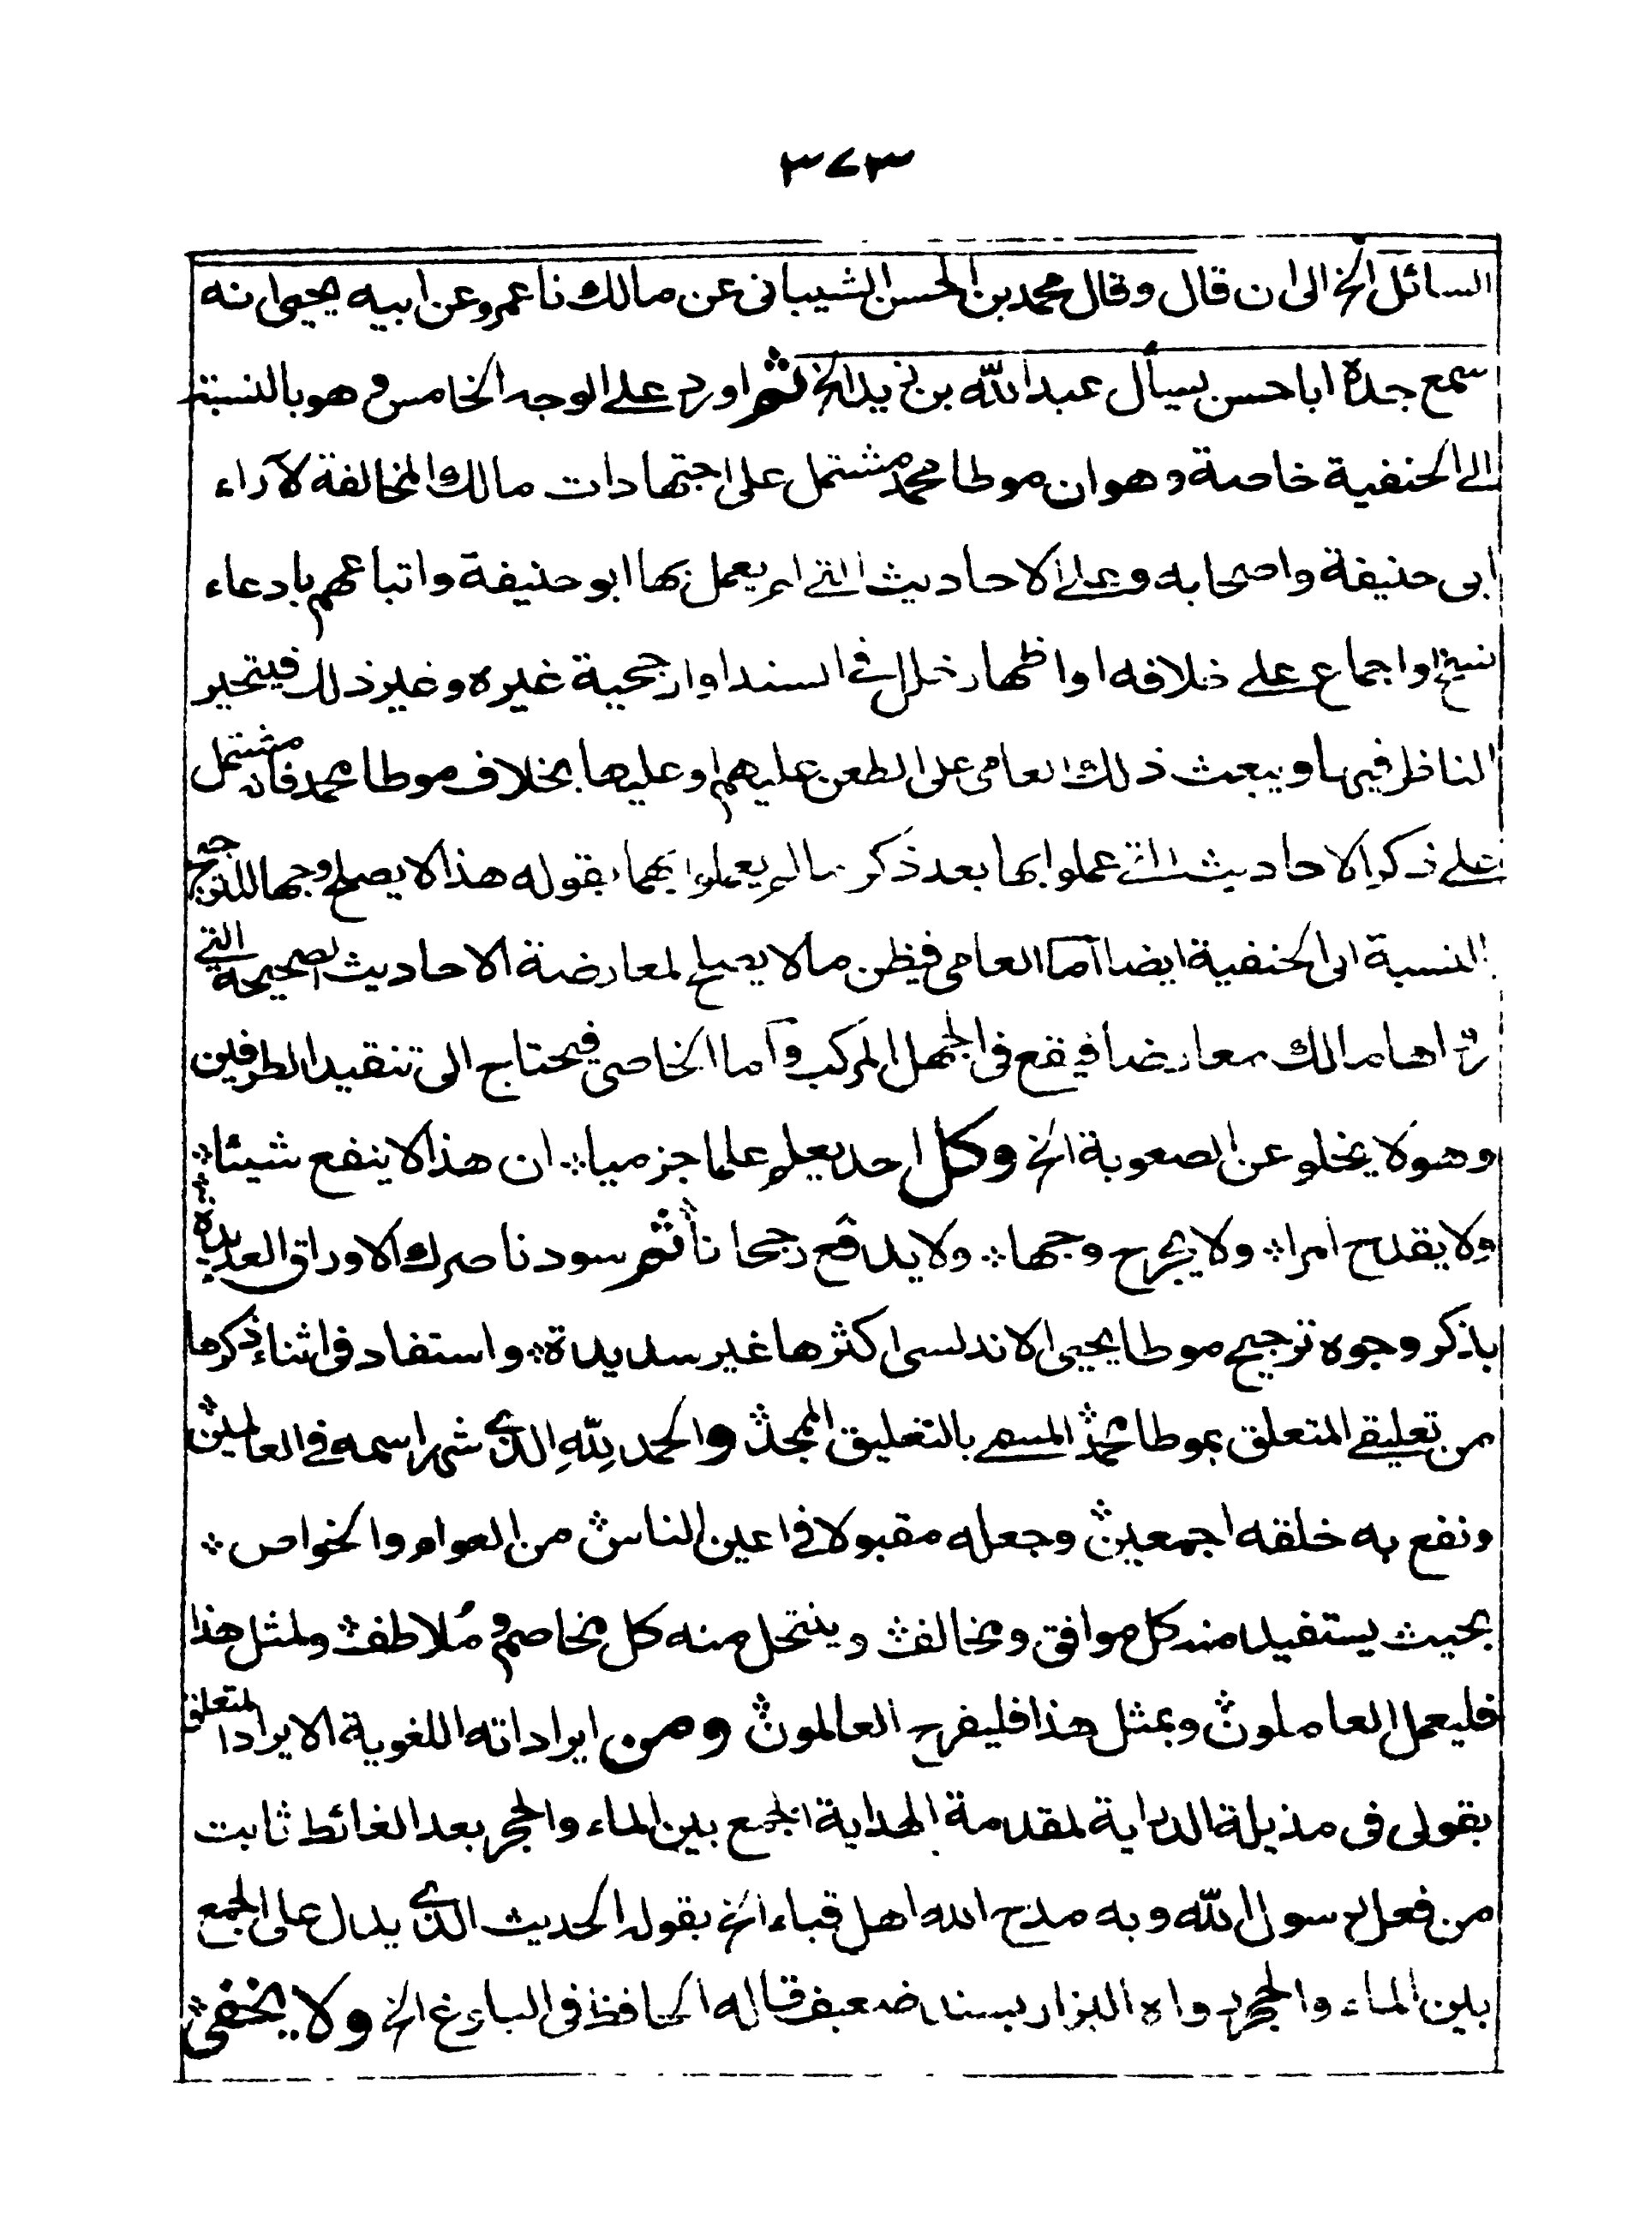 ٣٧٣
السائل الخ الى ان قال وقال محمد بن الحسن الشيبانى عن مالك نا عمرو عن ابيه يحيى انه
سمع جدة ابا حسن يسأل عبد الله بن زيد الخ ثم اورد على الوجه الخامس وهو بالنسبة
الى الحنفية خاصة وهو ان موطا محمد مشتمل على اجتهادات مالك المخالفة لآراء
ابى حنيفة واصحابه وعلى الاحاديث التى لم يعمل بها ابو حنيفة واتباعهم بادعاء
نسخ او اجماع على خلافه او اظهار خلل فى السند او ارجحية غيره وغير ذلك فيتحير
الناظر فيها ويبعث ذلك العامى على الطعن عليهم او عليها بخلاف موطا محمد فانه مشتمل
على ذكر الاحاديث التى عملوا بها بعد ذكر مالم يعملوا بهما بقوله هذا لا يصلح وجها للترجيح
بالنسبة الى الحنفية ايضا اما العامى فيظن مالا يصلح لمعارضة الاحاديث الصحيحة التى
رواها مالك معارضا فيقع فى الجهل المركب وآما الخاصى فيحتاج الى تنقيد الطرفين
وهو لا يخلو عن الصعوبة الخ وكل احد يعلم علما جزميا؞ ان هذا لا ينفع شيئا؞
ولا يقدح امرا؞ ولا يجرح وجها؞ ولا يدفع رجحانا؞ ثم سود ناصرك الاوراق العديدة؞
بذكر وجوه ترجيح موطا يحيى الاندلسى اكثرها غير سديدة؞ واستفاد فى اثناء ذكرها
من تعليقى المتعلق بموطا محمد؞ المسمى بالتعليق الممجد؞ والحمد لِلّهِ الذى شهر اسمه فى العالمين؞
ونفع به خلقه اجمعين؞ وجعله مقبولا فى اعين الناس؞ من العوام والخواص؞
بحيث يستفيد منه كل موافق ومخالف؞ وينتحل منه كل مخاصم ومُلاطف؞ ولمثل هذا
فليعمل العاملون؞ وبمثل هذا فليفرح العالمون؞ ومن ايراداته اللغوية الايراد المتعلق
بقولى فى مذيلة الدراية لمقدمة الهداية الجمع بين الماء والحجر بعد الغائط ثابت
من فعل رسول الله وبه مدح الله اهل قباء الخ بقوله الحديث الذى يدل على الجمع
بين الماء والحجر رواه البزار بسند ضعيف قاله الحافظ فى البلوغ الخ ولا يخفى؞